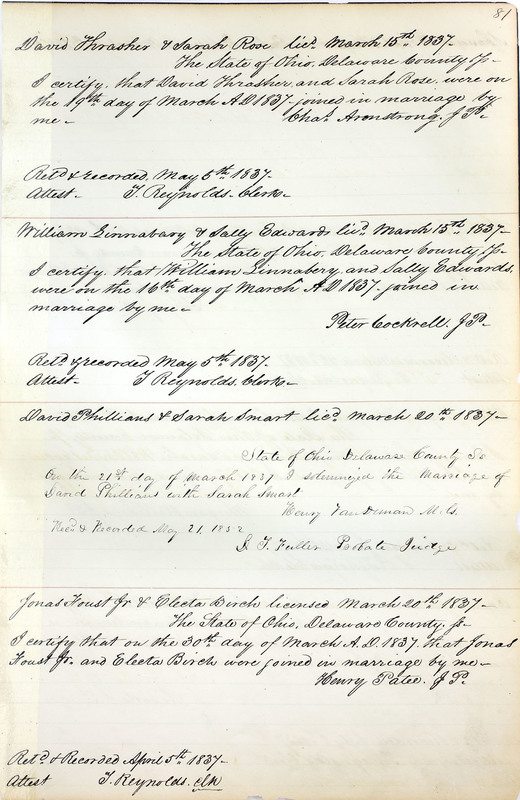 81
David Thrasher & Sarah Rose licd. March 15th 1837-
The State of Ohio, Delaware County Ss-
I certify, that David Thrasher, and Sarah Rose, were on
the 19th day of March A.D 1837- joined in marriage by
me- Chas. Armstrong. J P-
Retd & recorded, May 5th 1837-
Attest- T. Reynolds- Clerk-
William Linnabary & Sally Edwards licd. March 15th 1837-
The State of Ohio, Delaware County Ss-
I certify, that William Linnabery, and Sally Edwards,
were on the 16th day of March A D 1837. joined in
marriage by me-
Peter Cockrell. J P-
Retd. & recorded May 5th 1837-
Attest- T Reynolds. Clerk-
David Phillians & Sarah Smart licd. March 20th 1837-
State of Ohio Delaware County Ss
On the 21st day of March 1837 I solemnized the Marriage of
David Phillians with Sarah Smart
Henry Van Deman
Recd & Recorded May 21, 1852
T. Fuller Probate Judge
Jonas Foust Jr & Electa Birch licensed March 20th 1837-
The State of Ohio, Delaware County, Ss-
I certify that on the 30th day of March A. D. 1837. that Jonas
Foust Jr. and Electa Birch were joined in marriage by me-
Henry Patee. J P.
Retd & Recorded April 5th 1837-
Attest T. Reynolds. Clk